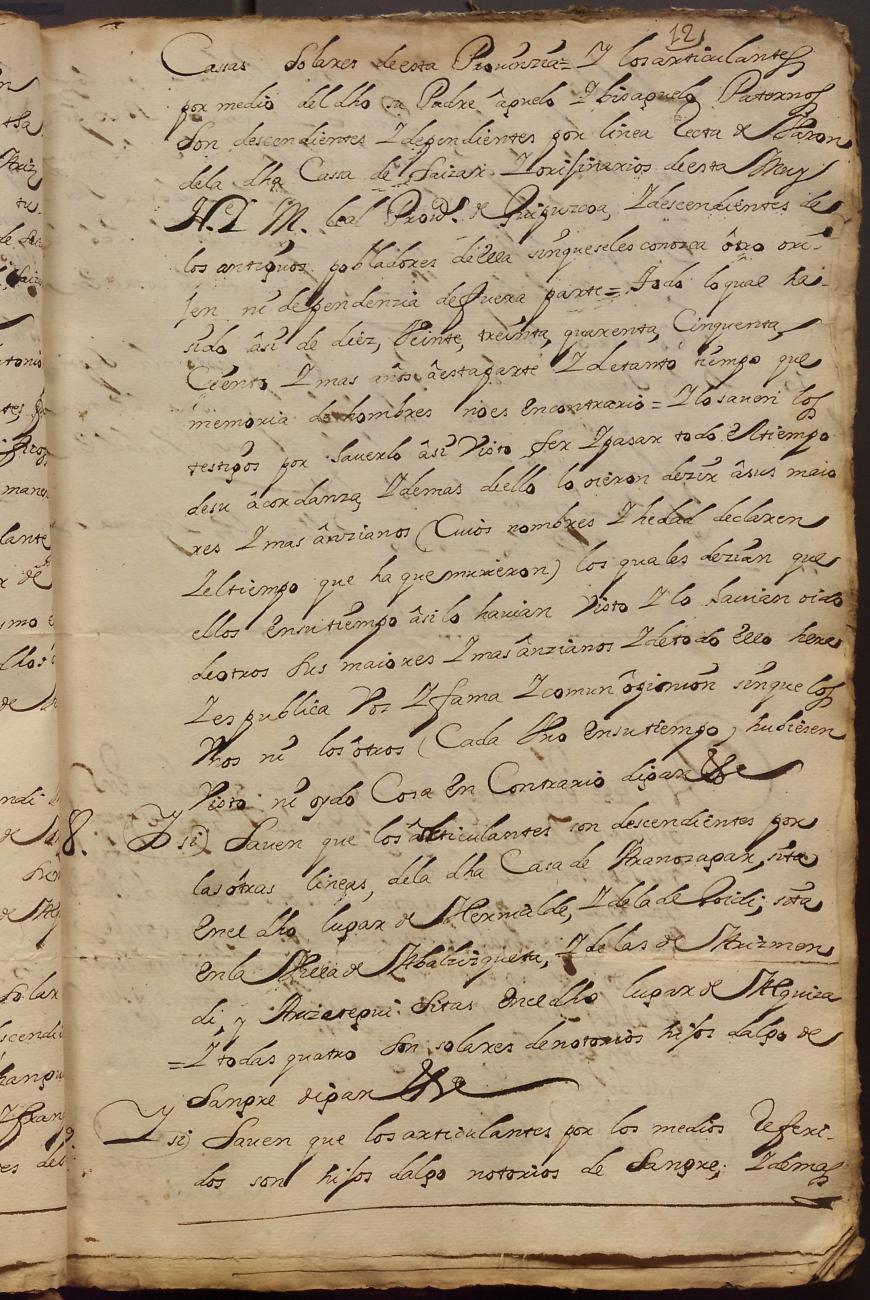 12
Casas Solares de esta Prouinzia = Y los articulantes
por medio del dho su Padre âguelo Y bisaguelo Paternos
son descendientes Y dependientes por linea Recta de Varon
dela dha Cassa de Saizar Y orijinarios de esta Muy
N. Y M. leal Prouia. de Guipuzcoa, Y descendientes de
los antiguos pobladores de ella sin que se les conozca ôtro ori-
jen ni dependenzia de fuera parte = todo lo qual ha
sido âsi de diez, Veinte, treinta, quarenta, Cinquenta,
Ciento Y mas años âesta parte Y de tanto tiempo que
memoria de hombres no es en contrario = Y lo saven los
testigos por Saverlo âsi Visto ser Y pasar todo el tiempo
de su âcordanza, Y demas de ello lo oieron dezir âsus maio
res Y mas ânzianos (Cuios nombres Y hedad declaren
Y el tiempo que ha que murieron) los quales dezian que
ellos en su tiempo âsi lo havian Visto Y lo havian oido
de otros sus maiores Y mas ânzianos Y de todo ello hera
Y es publica Voz Y fama Y comun ôpinion sin que los
Vnos ni los ôtros (Cada Vno en su tiempo) hubiesen
Visto ni oydo Cosa en Contrario digan &a
8. Y si) Saven que los articulantes son descendientes por
las ôtras lineas, dela dha Casa de Aranozagar, sita
en el dho lugar de Hernialde, Y dela de Goidi; sita
en la Villa de Abalzizqueta, Y de las de Arizmen
di, y Arizategui sitas en el dho lugar de Alquiza
= Y todas quatro son solares de notorios hijos dalgo de
Sangre digan &a
9. Y si) Saven que los articulantes por los medios Referi-
dos son hijos dalgo notorios de Sangre; Y demas